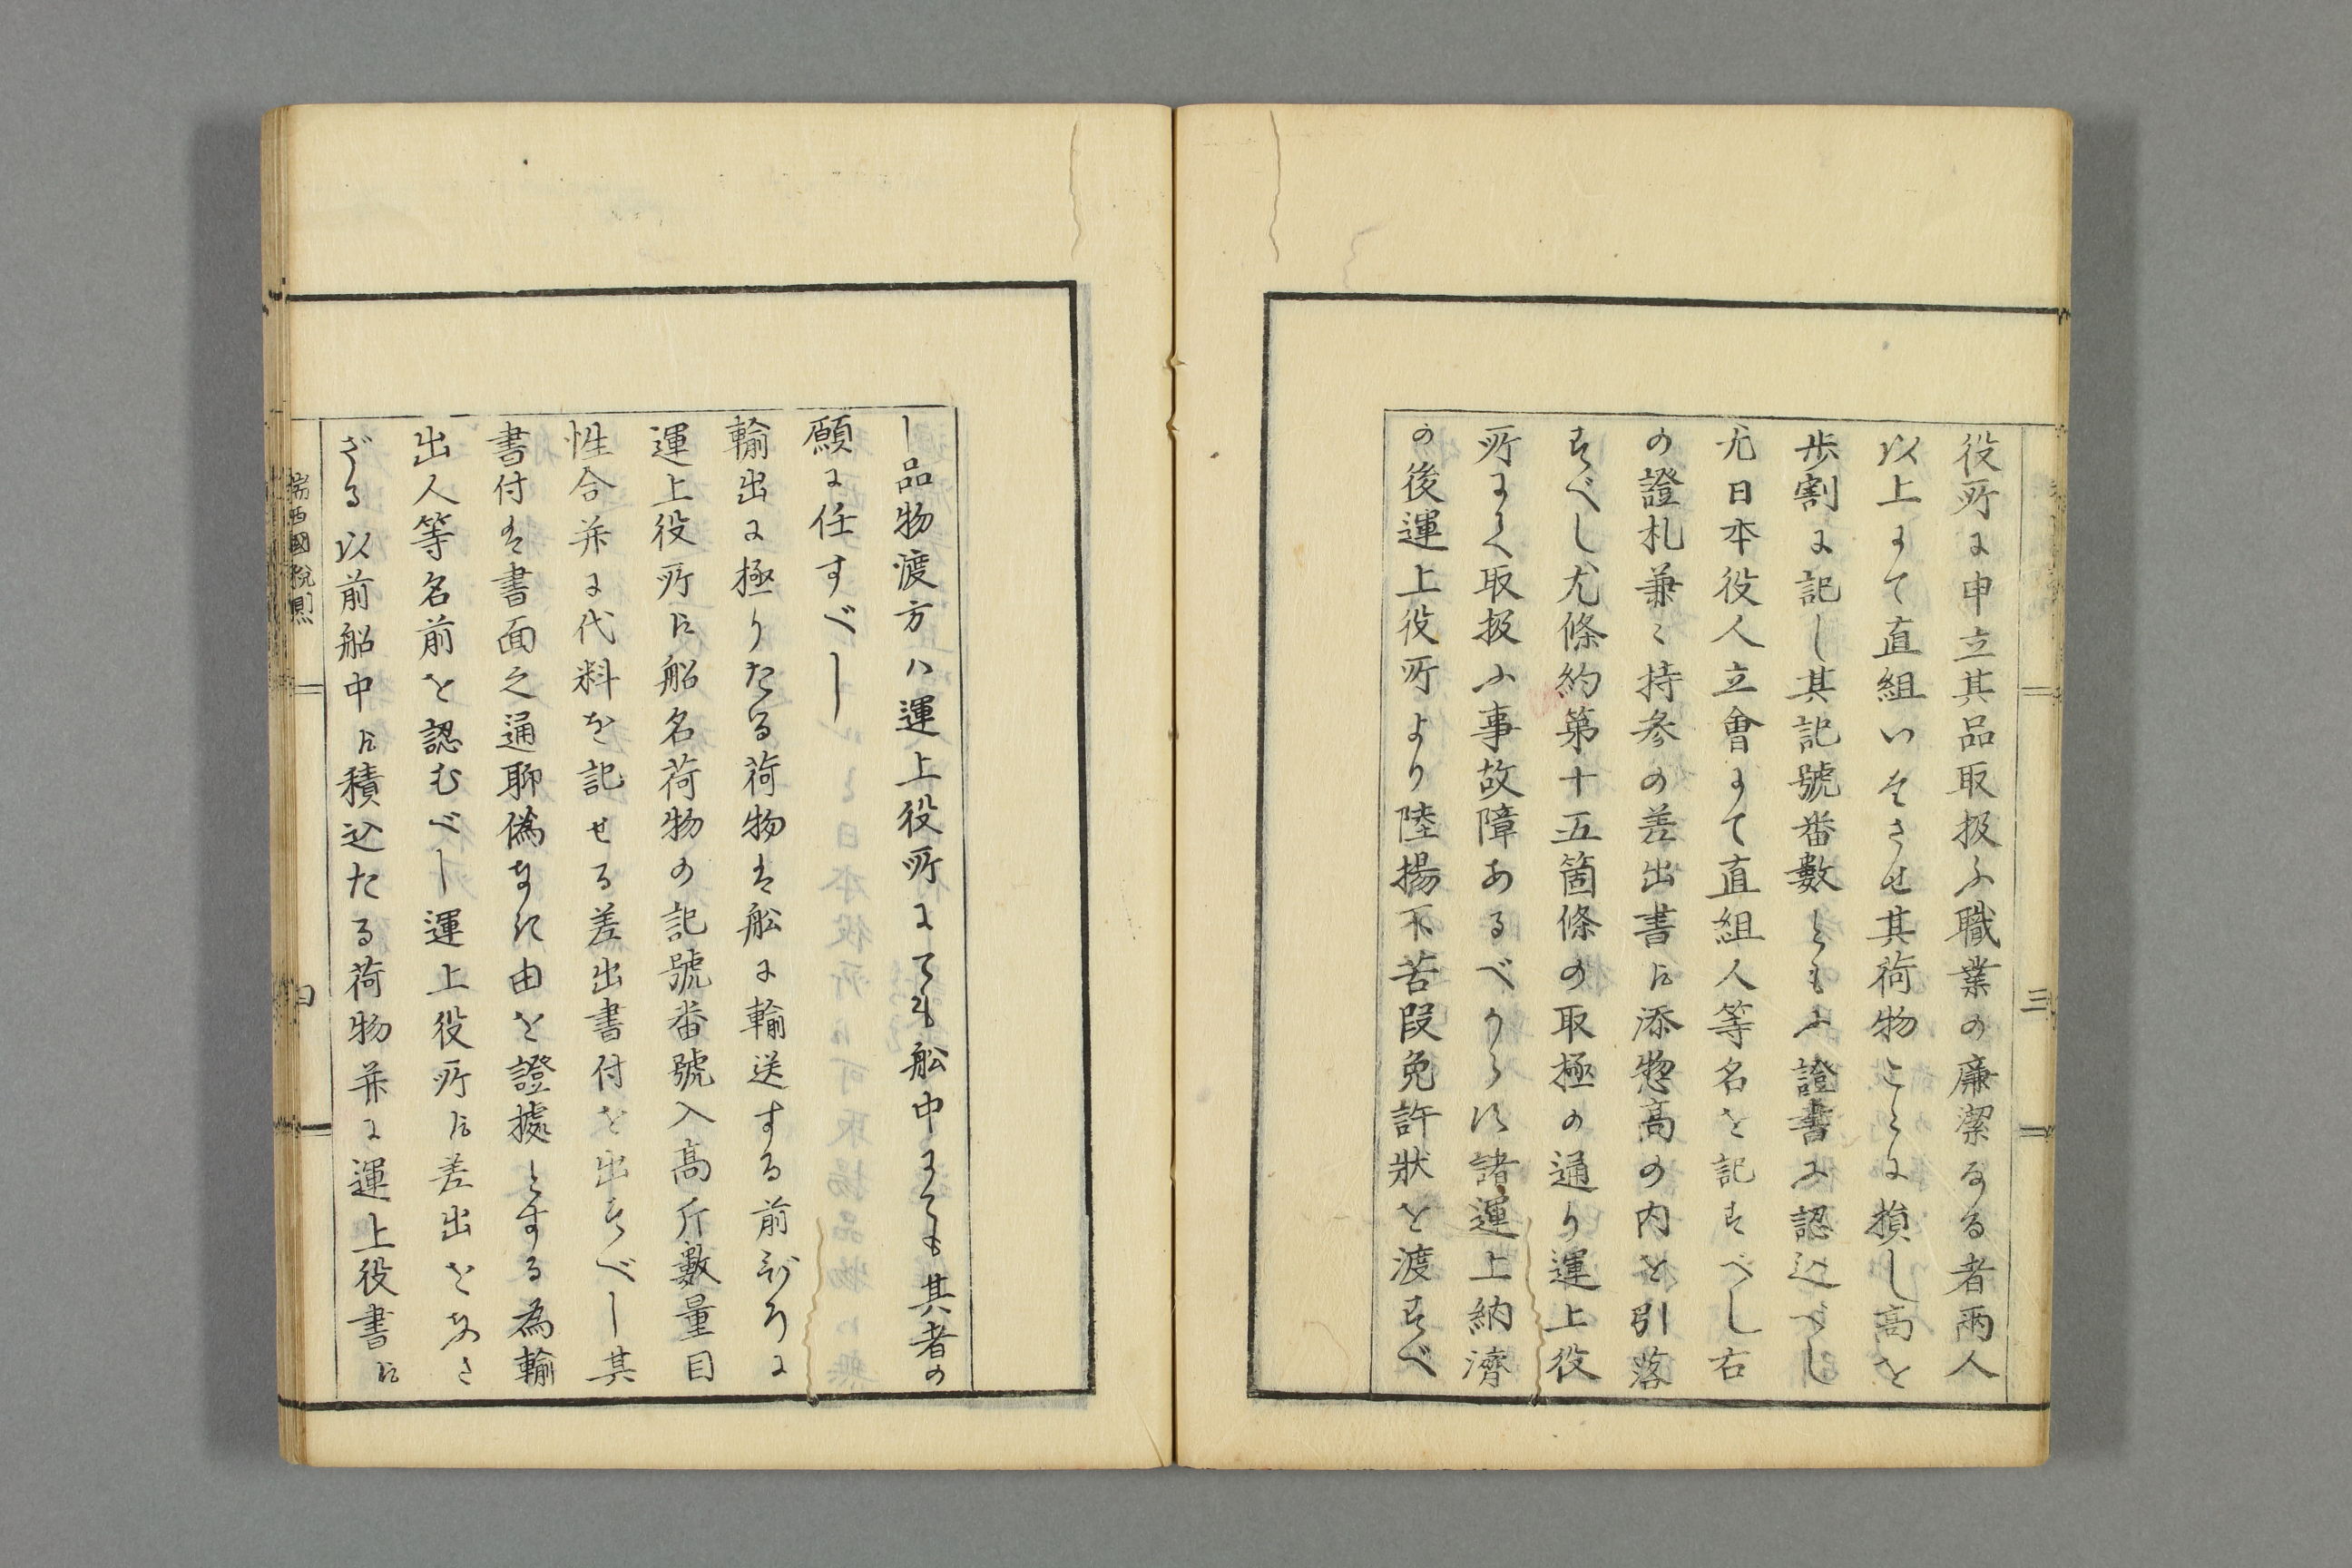 役所に申立其品取扱ふ職業の廉潔なる者両人
以上にて直組いたさせ其荷物ことに損し高を
歩割に記し其記號番數ともに證書に認込べし
尤日本役人立會にて直組人等名を記すべし右
の證札兼々持参の差出書に添惣高の内を引落
すべし尤條約第十五箇條の取極の通り運上役
所にて取扱ふ事故障あるべからず諸運上納濟
の後運上役所より陸揚不苦段免許狀を渡すべ
三
し品物渡方ハ運上役所にても船中にても其者の
願に任すべし
輸出に極りたる荷物は船に輸送する前割ろに
運上役所に船名荷物の記號番號入高斤數量目
性合并に代料を記せる差出書付を出すべし其
書付は書面之通聊偽なき由を證據とする為輸
出人等名前を認むべし運上役所に差出をなさ
ざる以前船中に積込たる荷物并に運上役書に
瑞西國税則
四